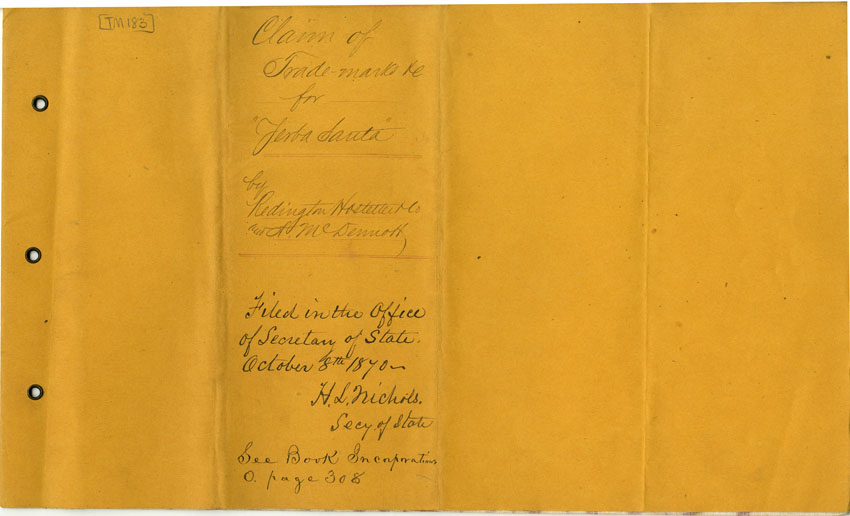 [TM183]
Claim of
Trade-marks &c
for
"Yerba Santa"
by
Redington Hostetter & Co
and A. McDermott
Filed in the Office
of Secretary of State.
October 8th 1870
H. L. Nichols.
Secy. of State
See Book Incorporations
O. page 308